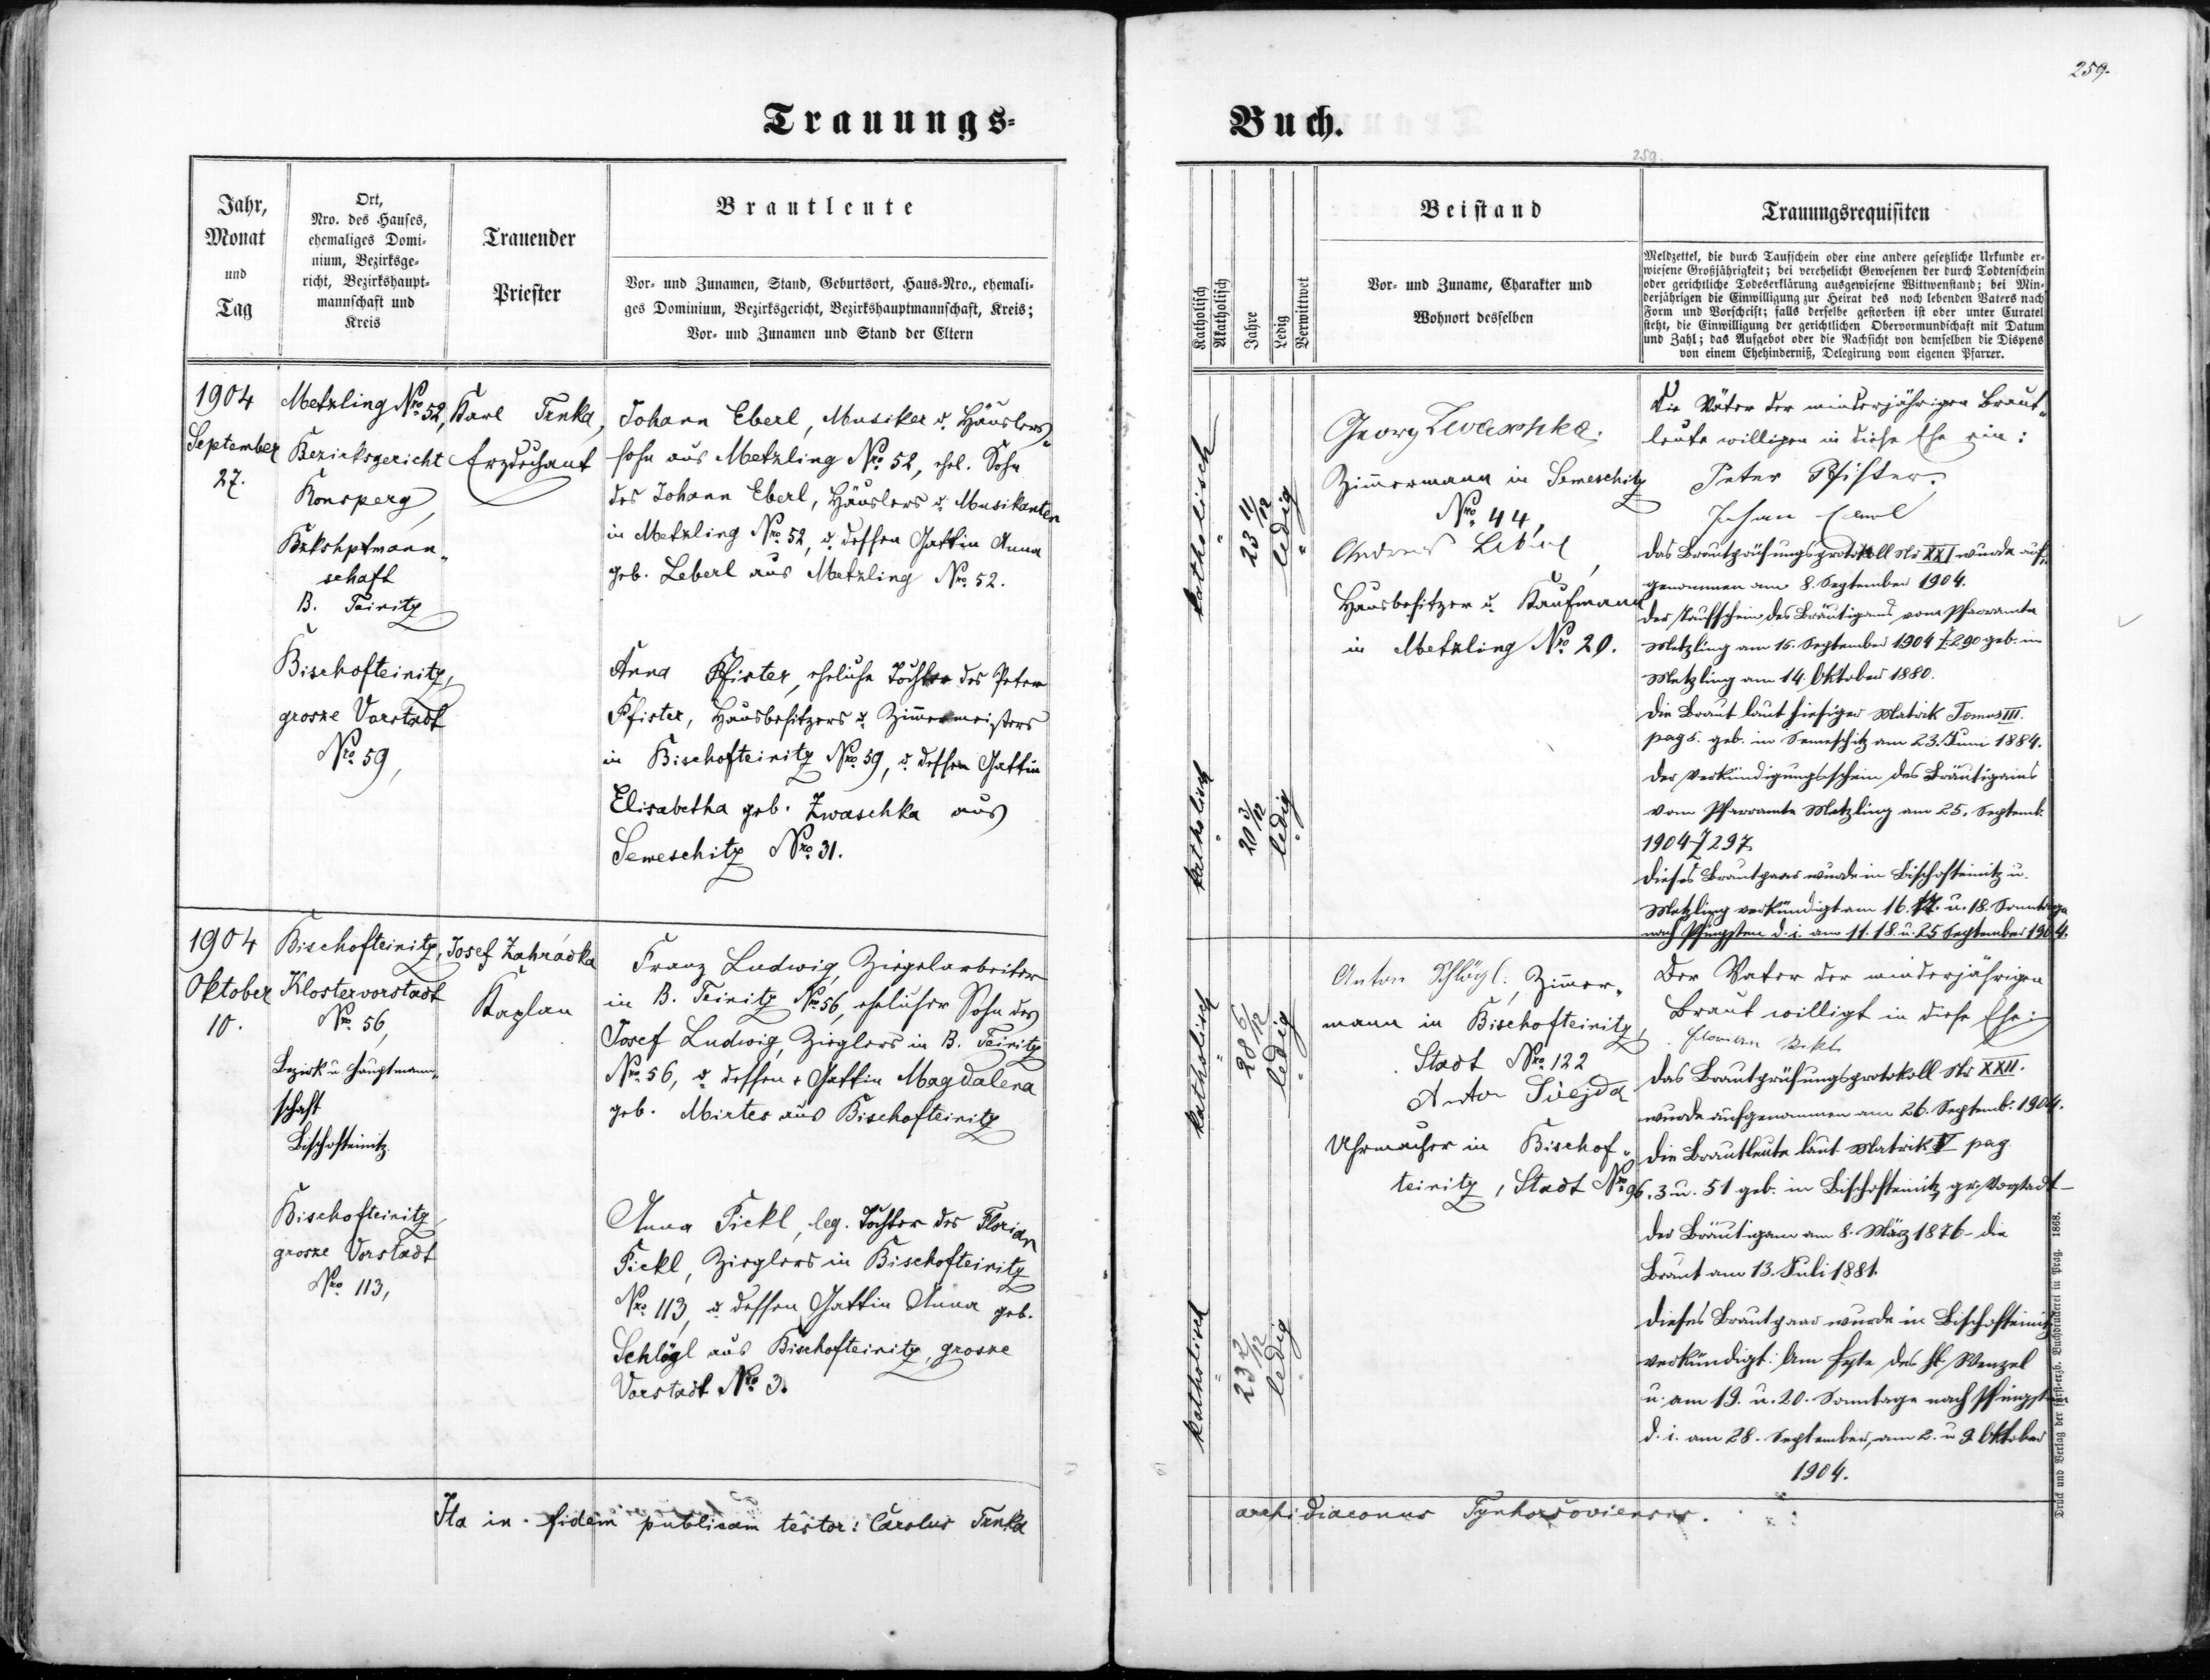 259.
Trauungs-
Buch.
259.
Jahr,
Monat
und
Tag
Ort,
Nro. des Hauses,
ehemaliges Domi-
nium, Bezirksge-
richt, Bezirkshaupt-
mannschaft und
Kreis
Trauender
Priester
Brautleute
Vor- und Zunamen, Stand, Geburtsort, Haus-Nro., ehemali-
ges Dominium, Bezirksgericht, Bezirkshauptmannschaft, Kreis;
Vor- und Zunamen und Stand der Eltern
Katholisch
Akatholisch
Jahre
Ledig
Verwittwet
Beistand
Vor- und Zuname, Charakter und
Wohnort desselben
Trauungsrequisiten
Meldzettel, die durch Taufschein oder eine andere gesetzliche Urkunde er-
wiesene Großjährigkeit; bei verehelicht Gewesenen der durch Todtenschein
oder gerichtliche Todeserklärung ausgewiesene Wittwenstand; bei Min-
derjährigen die Einwilligung zur Heirat des noch lebenden Vaters nach
Form und Vorschrift; falls derselbe gestorben ist oder unter Curatel
steht, die Einwilligung der gerichtlichen Obervormundschaft mit Datum
und Zahl; das Aufgebot oder die Nachsicht von demselben die Dispens
von einem Ehehinderniß, Delegirung vom eigenen Pfarrer.
1904
September
27.
Metzling Nro. 52,
Bezirksgericht
Ronsperg,
Bzkshptmann-
schaft
B. Teinitz
Bischofteinitz,
grosse Vorstadt
Nro. 59,
Karl Trnka,
Erzdechant
Johann Eberl, Musiker u. Häuslers-
sohn aus Metzling Nro. 52, ehel. Sohn
des Johann Eberl, Häuslers u. Musikanten
in Metzling Nro. 52, u. dessen Gattin Anna
geb. Leberl aus Metzling Nro. 52.
Anna Pfister, eheliche Tochter des Peter
Pfister, Hausbesitzers u. Zimmermeisters
in Bischofteinitz Nro. 59, u. dessen Gattin
Elisabetha geb. Zwaschka aus
Semeschitz Nro. 31.
katholisch
23 11/12
ledig
katholisch
20 3/12
ledig
Georg Zwaschka.
Zimmermann in Semeschitz
Nro. 44,
Andreas
Hausbesitzer u. Kaufmann
in Metzling Nro. 20.
Die Väter der minderjährigen Braut-
leute willigen in diese Ehe ein:
Peter Pfister.
Johann Eberl
Das Brautprüfungsprotokoll Nr XXI wurde auf-
genommen am 8. September 1904.
Der Taufschein des Bräutigams vom Pfarramte
Metzling am 16. September 1904 Z. 290 geb. in
Metzling am 14. Oktober 1880.
Die Braut laut hiesiger Matrik Tomus III.
pag 5. geb. in Semeschitz am 23. Juni 1884.
Der Verkündigungsschein des Bräutigams
vom Pfarramte Metzling am 25. Septemb.
1904 Z 297
Dieses Brautpaar wurde in Bischofteinitz u.
Metzling verkündigt am 16. 17. u. 18. Sonntage
nach Pfingsten d. i. am 11. 18. u. 25 September 1904.
1904
Oktober
10.
Bischofteinitz,
Klostervorstadt
Nro. 56,
Bezirk u. Hauptmann-
schaft
Bischofteinitz
Bischofteinitz
grosse Vorstadt
Nro. 113,
Josef Zahrádka
Kaplan
Franz Ludwig, Ziegelarbeiter
in B. Teinitz Nro. 56, ehelicher Sohn des
Josef Ludwig, Zieglers in B. Teinitz
Nro. 56, u. dessen Gattin Magdalena
geb. Mirtes aus Bischofteinitz
Anna Pickl, leg. Tochter des Florian
Pickl, Zieglers in Bischofteinitz
Nro. 113, u. dessen Gattin Anna geb.
Schlögl aus Bischofteinitz, grosse
Vorstadt Nro. 3.
katholisch
28 6/12
ledig
katholisch
23 2/12
ledig
Anton Schlögl, Zimmer-
mann in Bischofteinitz,
Stadt Nro. 122
Anton Švejda
Uhrmacher in Bischof-
teinitz, Stadt Nro. 96.
Der Vater der minderjährigen
Braut willigt in diese Ehe:
Florian Pickl
Das Brautprüfungsprotokoll Nr XXII.
wurde aufgenommen am 26. Septemb. 1904.
Die Brautleute laut Matrik V pag.
3 u. 51 geb. in Bischofteinitz gr. Vorstadt –
der Bräutigam am 8. März 1876 – die
Braut am 13. Juli 1881.
Dieses Brautpaar wurde in Bischofteinitz
verkündigt: Am Feste des hl. Wenzel
u. am 19. u. 20. Sonntage nach Pfingsten
d. i. am 28. September, am 2. u 9 Oktober
1904.
Ita in fidem publicam testor: Carolus Trnka
archidiaconus Tynhorsoviensis.
Druck und Verlag der fürst-erzb. Buchdruckerei in Prag. 1868.